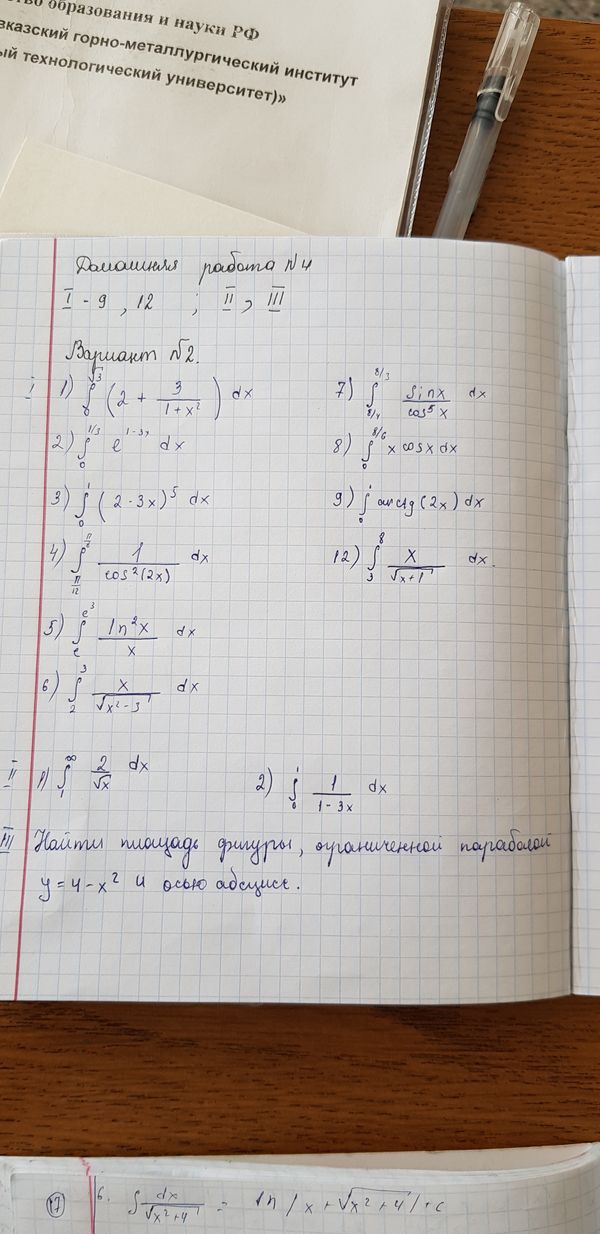 ство образования и науки РФ
вказский горно-металлургический институт
ый технологический университет)»
Домашняя работа №4
I - 9, 12 ; II, III
Вариант №2.
I 1) ∫₀^√3 (2 + 3/(1+x²)) dx
2) ∫₀^1/3 e^1-3x dx
3) ∫₀^1 (2-3x)⁵ dx
4) ∫ 1/cos²(2x) dx
5) ∫ₑ^e³ ln²x/x dx
6) ∫₂^3 x/√(x²-3) dx
7) ∫ sinx/cos⁵x dx
8) ∫₀ x cosx dx
9) ∫₀^1 arctg(2x) dx
12) ∫₃^8 x/√(x+1) dx.
II 1) ∫₁^∞ 2/√x dx
2) ∫₀^1 1/(1-3x) dx
III Найти площадь фигуры, ограниченной параболой
y=4-x² и осью абсцисс.
17 6. ∫ dx/√(x²+4) = ln|x+√(x²+4)|+c